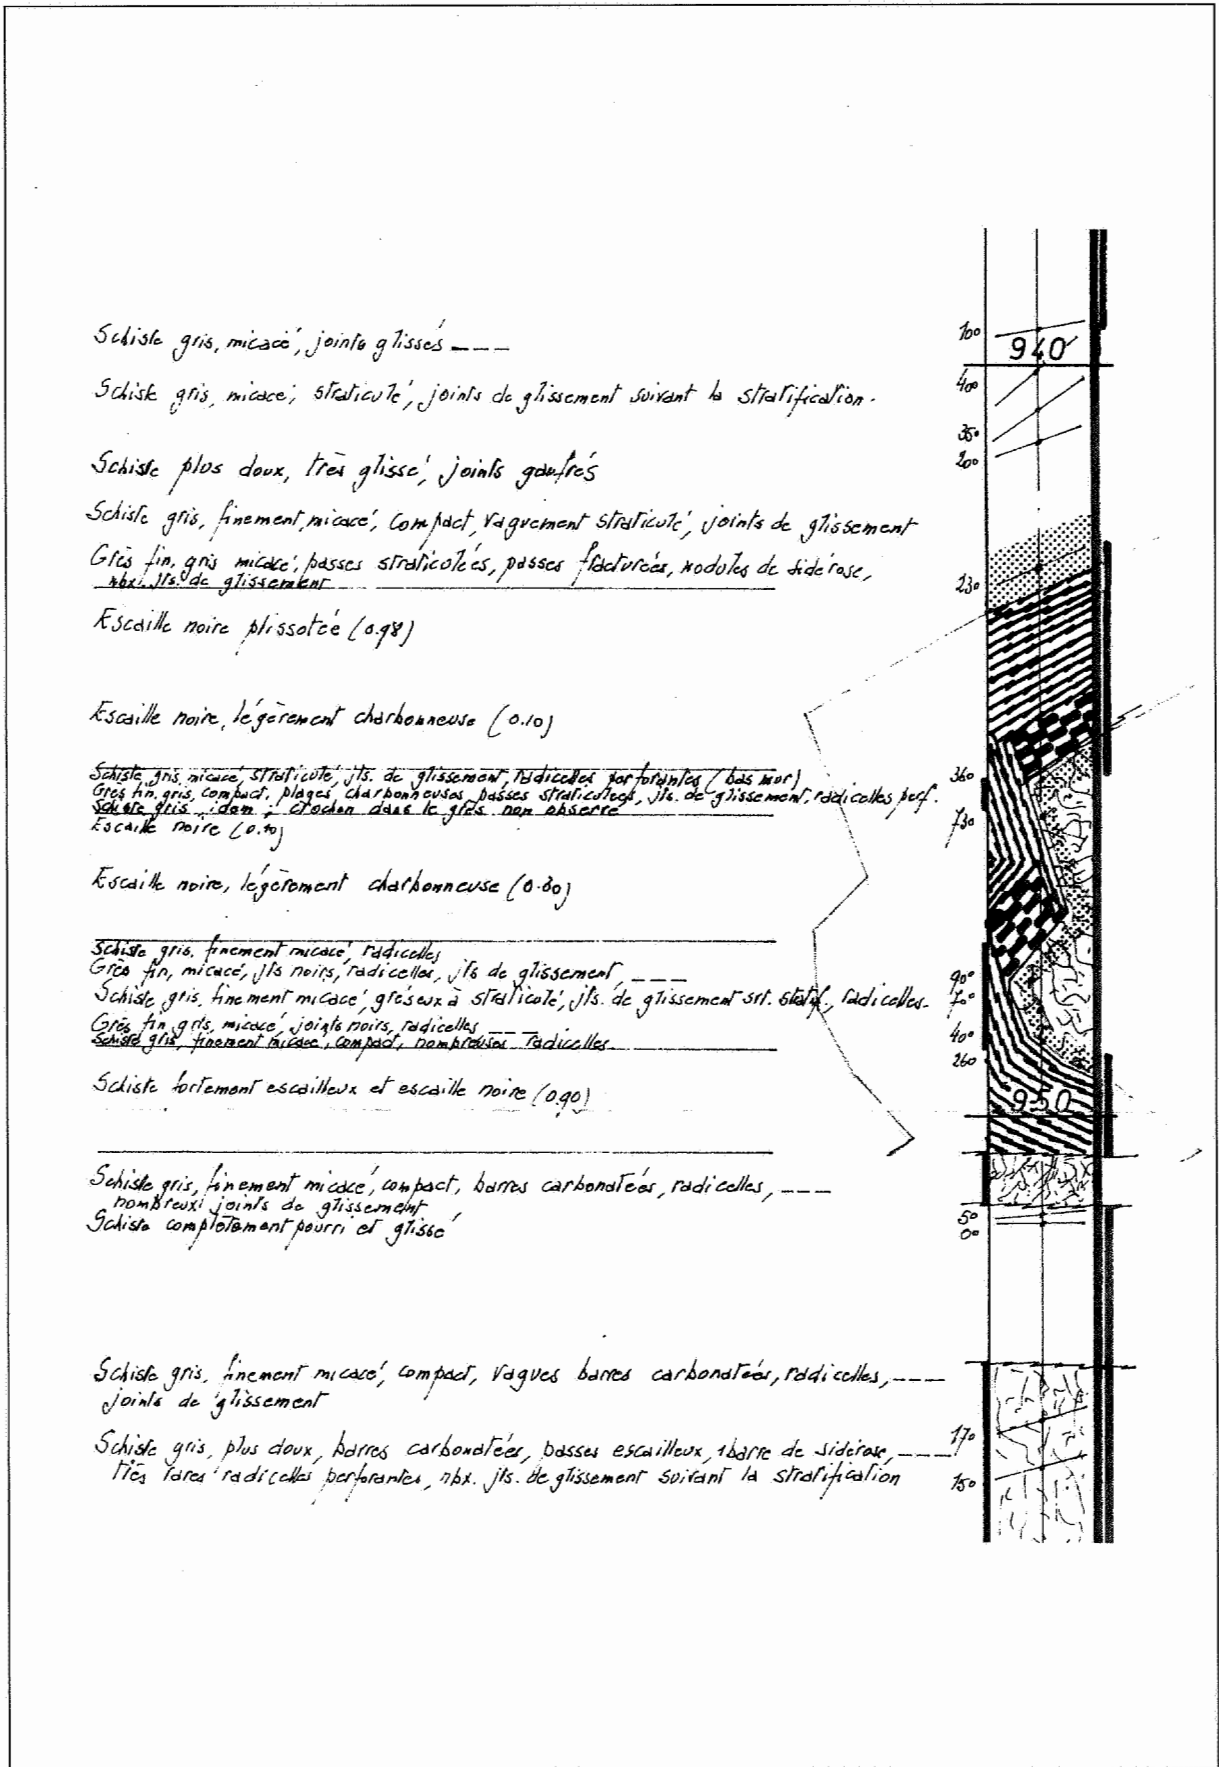 Schiste gris, micacé, joints glissés ---
10°
940
Schiste gris, micacé, straticulé, joints de glissement suivant la stratification.
40°
35°
20°
Schiste plus doux, très glissé, joints gaufrés
Schiste gris, finement micacé, compact, vaguement straticulé, joints de glissement
Grès fin, gris micacé, passes straticulées, passes fracturées, nodules de sidérose,
nbx. jts. de glissement
23°
Escaille noire plissotée (0.98)
Escaille noire, légèrement charbonneuse (0.10)
Schiste gris, micacé, straticulé, jts. de glissement, radicelles perforantes (bas mur)
36°
Grès fin, gris, compact, plages charbonneuses, passes straticulées, jts. de glissement, radicelles perf.
Schiste gris, idem ; crochon dans le grès non observé
73°
Escaille noire
Escaille noire, légèrement charbonneuse (0.80)
Schiste gris, finement micacé, radicelles
Grès fin, micacé, jts noirs, radicelles, jts de glissement, ---
90°
Schiste gris, finement micacé, gréseux à straticulé, jts. de glissement srt. stratif., radicelles.
70°
Grès fin gris, micacé, joints noirs, radicelles ---
Schiste gris, finement micacé, compact, nombreuses radicelles
40°
26°
Schiste fortement escailleux et escaille noire (0.90)
950
Schiste gris, finement micacé, compact, barres carbonatées, radicelles, ---
nombreux joints de glissement
Schiste complètement pourri et glissé
5°
0°
Schiste gris, finement micacé, compact, vagues barres carbonatées, radicelles, ---
joints de glissement
Schiste gris, plus doux, barres carbonatées, passes escailleux, 1 barre de sidérose, ---
17°
très rares radicelles perforantes, nbx. jts. de glissement suivant la stratification
15°